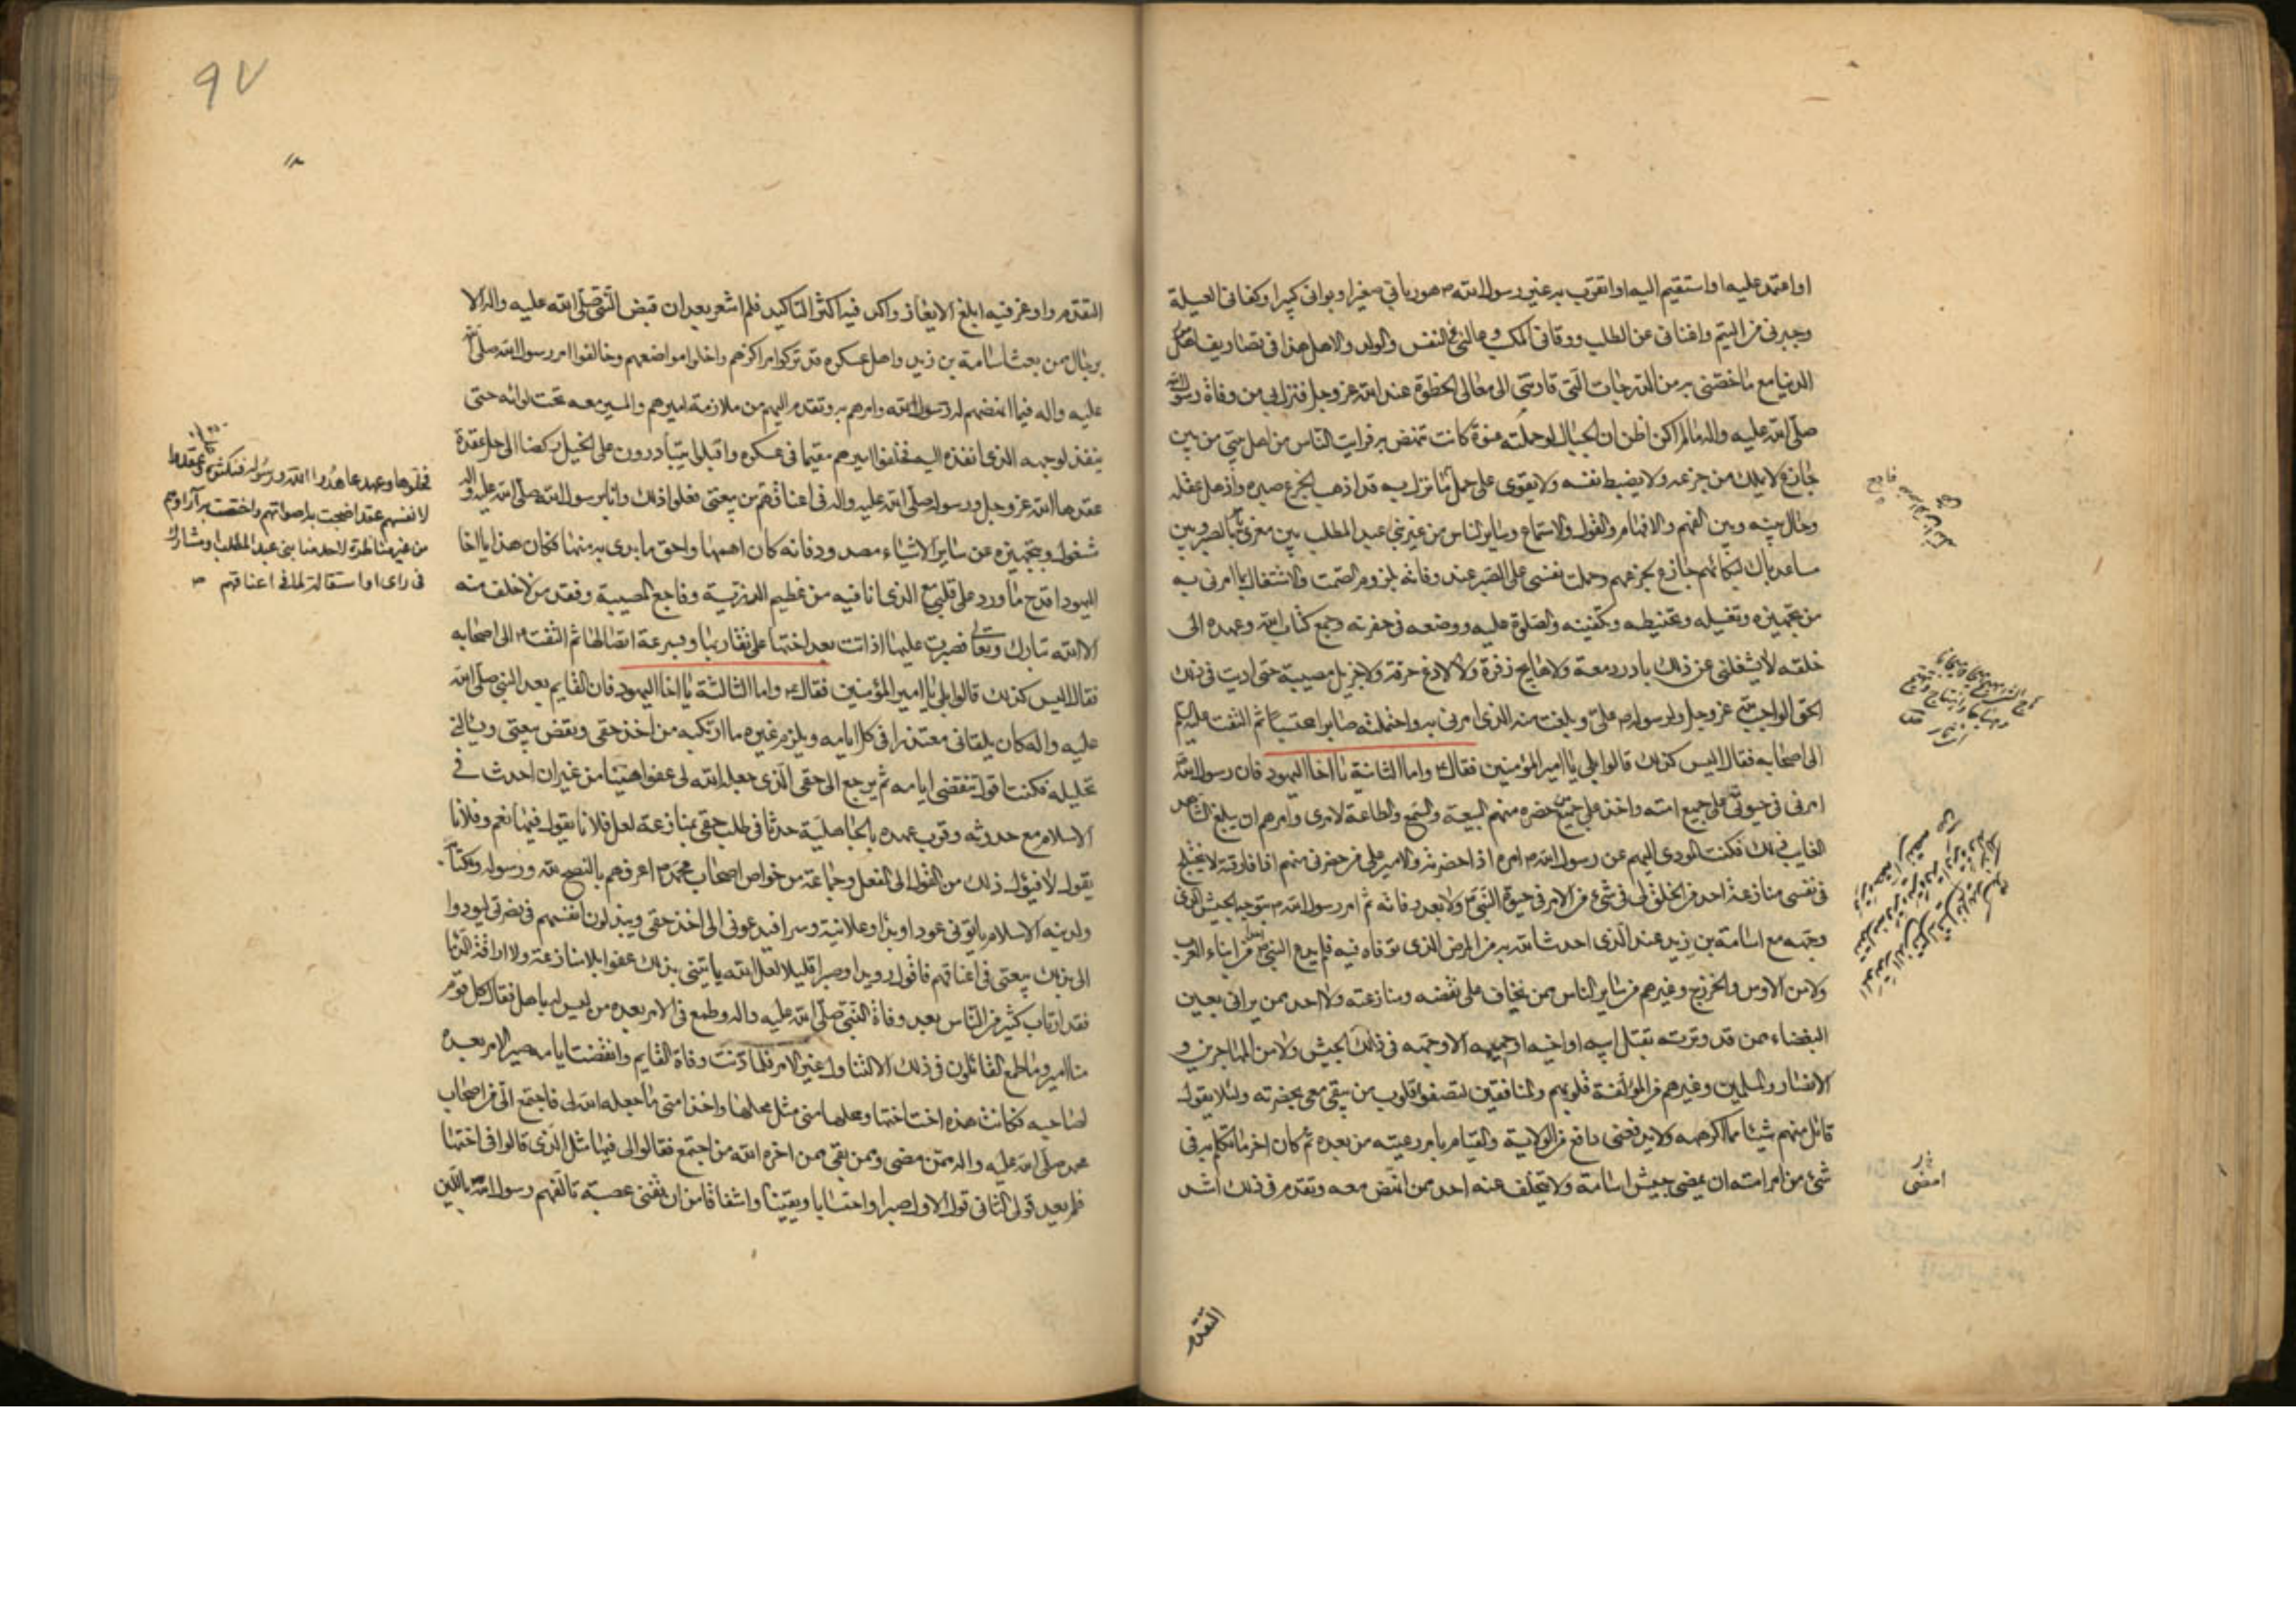 او اعتمد عليه او استقيم اليه او اتقرب به غير رسول الله ص هو رباني صغيرا و بواني كبيرا و كفاني العيلة
و جبرني من اليتم و اغناني عن الطلب و وقاني المكسب و عال لي النفس و الولد و الاهل هذا في تصاريف امر
الدنيا مع ما خصني به من الدرجات التي قادتني الى معالي الحظوة عند الله عز و جل فنزل بي من وفاة رسول الله
صلى الله عليه و اله ما لم اكن اظن ان الجبال لو حملته عنوة كانت تنهض به فرايت الناس من اهل بيتي من بين
جازع لا يملك من جزعه و لا يضبط نفسه و لا يقوى على حمل ما نزل به قد اذهب الجزع صبره و اذهل عقله
و حال بينه و بين الفهم و الافهام و القول و الاستماع و ساير الناس من غير بني عبد المطلب بين معزي يامر بالصبر و بين
مساعد باك لبكائهم جازع لجزعهم و حملت نفسي على الصبر عند وفاته بلزوم الصمت و الاشتغال بما امرني به
من تجهيزه و تغسيله و تحنيطه و تكفينه و الصلوة عليه و وضعه في حفرته و جمع كتاب الله و عهده الى
خلقه لا يشغلني عن ذلك بادر دمعة و لا هايج زفرة و لا لاذع حرقة و لا جزيل مصيبة حتى اديت في ذلك
الحق الواجب لله عز و جل و لرسوله ص علي و بلغت منه الذي امرني به و احتملته صابرا محتسبا ثم التفت عليه السلام
الى اصحابه فقال اليس كذلك قالوا بلى يا امير المؤمنين فقال ع و اما الثانية يا اخا اليهود فان رسول الله
امرني في حيوته على جميع امته و اخذ على جميع من حضره منهم البيعة و السمع و الطاعة لامري و امرهم ان يبلغ الشاهد
الغايب ذلك فكنت المودي اليهم عن رسول الله ص امره اذا حضرته و الامير على من حضرني منهم اذا فارقته لا تختلج
في نفسي منازعة احد من الخلق لي في شيء من الامر في حيوة النبي ص و لا بعد وفاته ثم امر رسول الله ص بتوجيه الجيش الذي
وجهه مع اسامة بن زيد عند الذي احدث الله به من المرض الذي توفاه فيه فلم يدع النبي احدا من ابناء العرب
و لا من الاوس و الخزرج و غيرهم من ساير الناس ممن يخاف على نقضه و منازعته و لا احد ممن يراني بعين
البغضاء ممن قد وترته بقتل ابيه او اخيه او حميمه الا وجهه في ذلك الجيش و لا من المهاجرين و
الانصار و المسلمين و غيرهم من المؤلفة قلوبهم و المنافقين لتصفو قلوب من يبقى معي بحضرته و لئلا يقول
قائل منهم شيئا مما اكرهه و لا يدفعني دافع من الولاية و القيام بامر رعيته من بعده ثم كان اخر ما تكلم به في
شيء من امر امته ان يمضي جيش اسامة و لا يتخلف عنه احد ممن انهض معه و تقدم في ذلك اشد
امضى
التقدم
٩٧
التقدم و اوعز فيه ابلغ الايعاز و اكد فيه اكثر التاكيد فلم اشعر بعد ان قبض النبي صلى الله عليه و اله الا
برجال من بعث اسامة بن زيد و اهل عسكره قد تركوا مراكزهم و اخلوا مواضعهم و خالفوا امر رسول الله صلى الله
عليه و اله فيما انهضهم له رسول الله و امرهم به و تقدم اليهم من ملازمة اميرهم و المسير معه تحت لوائه حتى
ينفذ لوجهه الذي انفذه اليه فخلفوا اميرهم مقيما في عسكره و اقبلوا يتبادرون على الخيل ركضا الى حل عقدة
عقدها الله عز و جل و رسوله صلى الله عليه و اله في اعناقهم من بيعتي فعلوا ذلك و انا برسول الله صلى الله عليه و اله
مشغول و بتجهيزه عن ساير الاشياء مصدود فانه كان اهمها و احق ما بدئ به منها فكان هذا يا اخا
اليهود اقرح ما ورد على قلبي مع الذي انا فيه من عظيم الرزية و فاجع المصيبة و فقد من لا خلف منه
الا الله تبارك و تعالى فصبرت عليها اذ اتت بعد اختها على تقاربها و سرعة اتصالها ثم التفت ع الى اصحابه
فقال اليس كذلك قالوا بلى يا امير المؤمنين فقال ع و اما الثالثة يا اخا اليهود فان القايم بعد النبي صلى الله
عليه و اله كان يلقاني معتذرا في كل ايامه و يلزم غيره ما ارتكبه من اخذ حقي و نقض بيعتي و يسالني
تحليله فكنت اقول تنقضي ايامه ثم يرجع الى حقي الذي جعله الله لي عفوا هنيئا من غير ان احدث في
الاسلام مع حدوثه و قرب عهده بالجاهلية حدثا في طلب حقي بمنازعة لعل فلانا يقول فيها نعم و فلانا
يقول لا فيؤل ذلك من القول الى الفعل و جماعة من خواص اصحاب محمد ص اعرفهم بالنصح لله و رسوله و لكتابه
و لدينه الاسلام ياتوني عودا و بدءا و علانية و سرا فيدعوني الى اخذ حقي و يبذلون انفسهم في نصرتي ليودوا
الي بذلك بيعتي في اعناقهم فاقول رويدا و صبرا قليلا لعل الله ياتيني بذلك عفوا بلا منازعة و لا اراقة الدما
فقد ارتاب كثير من الناس بعد وفاة النبي صلى الله عليه و اله و طمع في الامر بعده من ليس له باهل فقال كل قوم
منا امير و ما طمع القائلون في ذلك الا لتناول غيري الامر فلما دنت وفاة القايم و انقضت ايامه صير الامر بعده
لصاحبه فكانت هذه اخت اختها و محلها مني مثل محلها و اخذا مني ما جعله الله لي فاجتمع الي من اصحاب
محمد صلى الله عليه و اله ممن مضى و ممن بقي ممن اخره الله من اجتمع فقالوا لي فيها مثل الذي قالوا في اختها
فلم يعد قولي الثاني قول الاول صبرا و احتسابا و يقينا و اشفاقا من ان تفنى عصبة تالفهم رسول الله باللين
فحلوها و عهد عاهدوا الله و رسوله فنكثوه و عقدوا
لانفسهم عقدا ضجت به اصواتهم و اختصت به آراؤهم
من غير مناظرة لاحد منا بني عبد المطلب او مشاركة
في راي او استقالة لما في اعناقهم